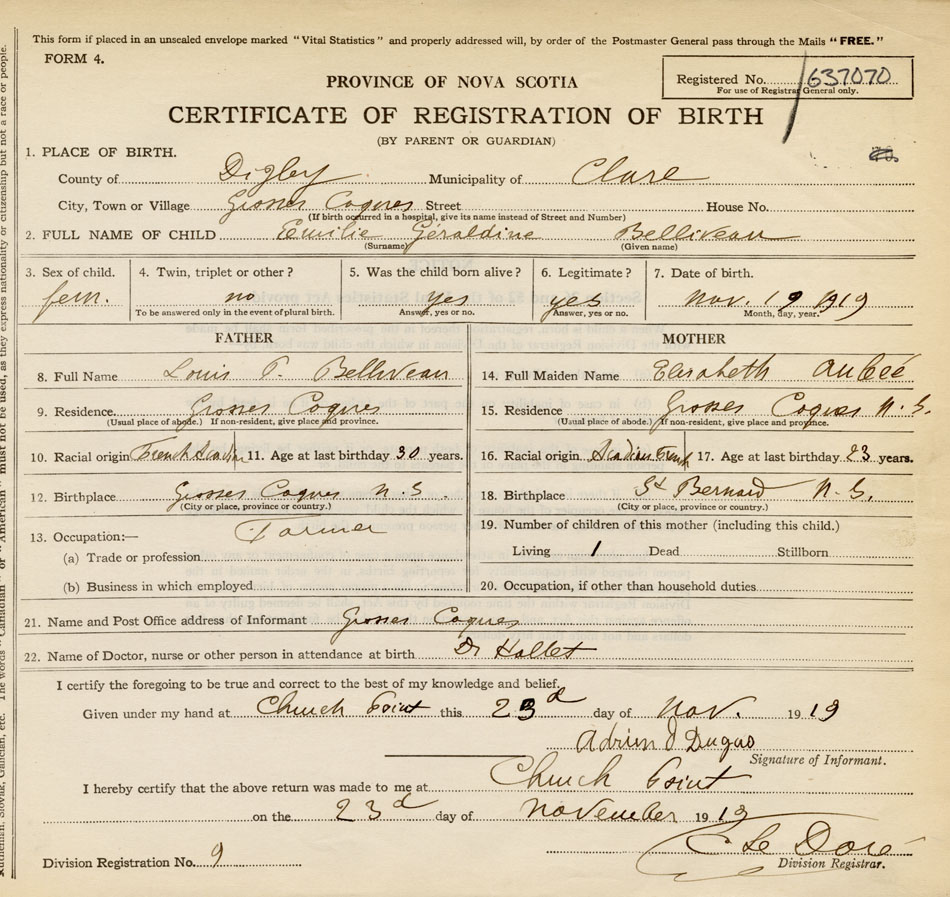 This form if placed in an unsealed envelope marked "Vital Statistics" and properly addressed will, by order of the Postmaster General pass through the Mails "FREE."
FORM 4.
Registered No. 637070
For use of Registrar General only.
PROVINCE OF NOVA SCOTIA
CERTIFICATE OF REGISTRATION OF BIRTH
(BY PARENT OR GUARDIAN)
1. PLACE OF BIRTH.
County of Digby Municipality of Clare
City, Town or Village Grosses Coques Street House No.
(If birth occurred in a hospital, give its name instead of Street and Number)
2. FULL NAME OF CHILD Emilie Géraldine Belliveau
(Surname) (Given name)
3. Sex of child. 4. Twin, triplet or other? 5. Was the child born alive? 6. Legitimate? 7. Date of birth.
fem. no yes yes Nov. 19 1919
To be answered only in the event of plural birth. Answer, yes or no. Answer, yes or no. Month, day, year.
FATHER MOTHER
8. Full Name Louis P. Belliveau 14. Full Maiden Name Elizabeth
9. Residence Grosses Coques 15. Residence Grosses Coques N.S.
(Usual place of abode.) If non-resident, give place and province. (Usual place of abode.) If non-resident, give place and province.
10. Racial origin French Acadian 11. Age at last birthday 30 years. 16. Racial origin Acadian French 17. Age at last birthday 23 years.
12. Birthplace Grosses Coques N.S. 18. Birthplace St Bernard N.S.
(City or place, province or country.) (City or place, province or country.)
13. Occupation:— Farmer 19. Number of children of this mother (including this child.)
(a) Trade or profession Living 1 Dead Stillborn
(b) Business in which employed 20. Occupation, if other than household duties
21. Name and Post Office address of Informant Grosses Coques
22. Name of Doctor, nurse or other person in attendance at birth Dr Hallet
I certify the foregoing to be true and correct to the best of my knowledge and belief.
Given under my hand at Church Point this 23d day of Nov. 1919
Adrien J Dugas
Signature of Informant.
I hereby certify that the above return was made to me at Church Point
on the 23d day of November 1919
Le Doré
Division Registration No. 9 Division Registrar.
The words "Canadian" or "American" must not be used, as they express nationality or citizenship but not a race or people.
Ruthenian, Slovak, Galician, etc.